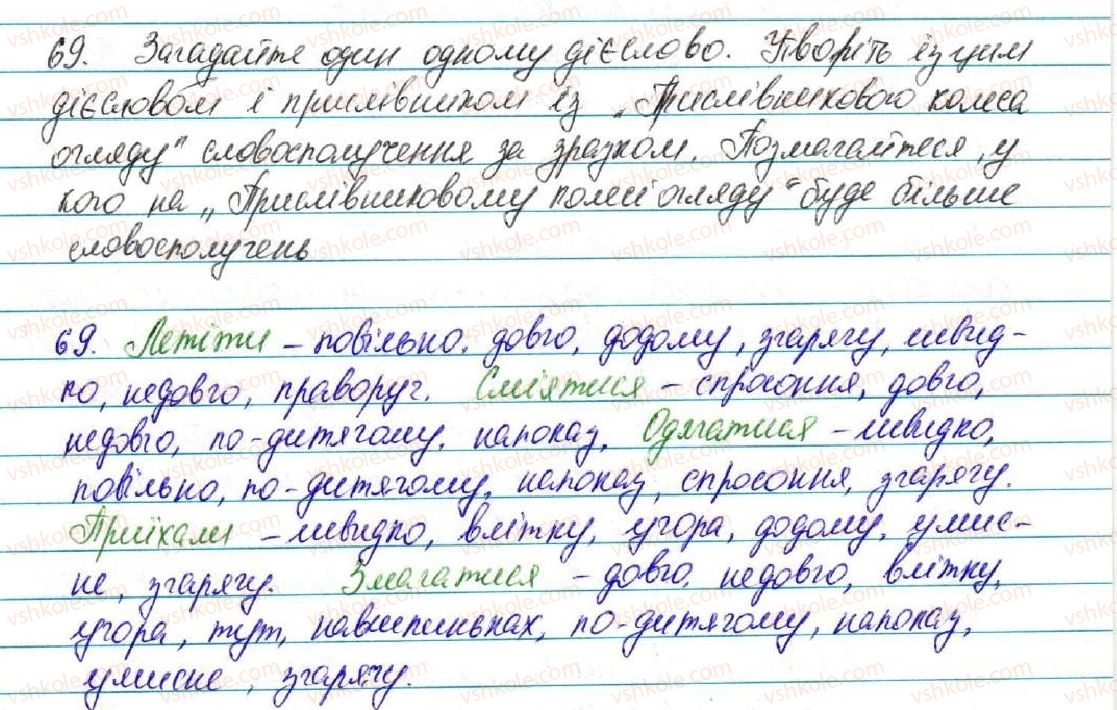 69. Загадайте один одному дієслово. Утворіть із цим
дієсловом і прислівником із „Прислівникового колеса
огляду" словосполучення за зразком. Позмагайтеся, у
кого на „Прислівниковому колесі огляду" буде більше
словосполучень
69. Летіти – повільно, довго, додому, згарячу, швид-
ко, недовго, праворуч. Сміятися – спросоння, довго,
недовго, по-дитячому, напоказ, Одягатися – швидко,
повільно, по-дитячому, напоказ, спросоння, згарячу.
Приїхали – швидко, влітку, угорa, додому, умис-
не, згарячу. Змагатися – довго, недовго, влітку,
угора, тут, навшпиньках, по-дитячому, напоказ,
умисне, згарячу.